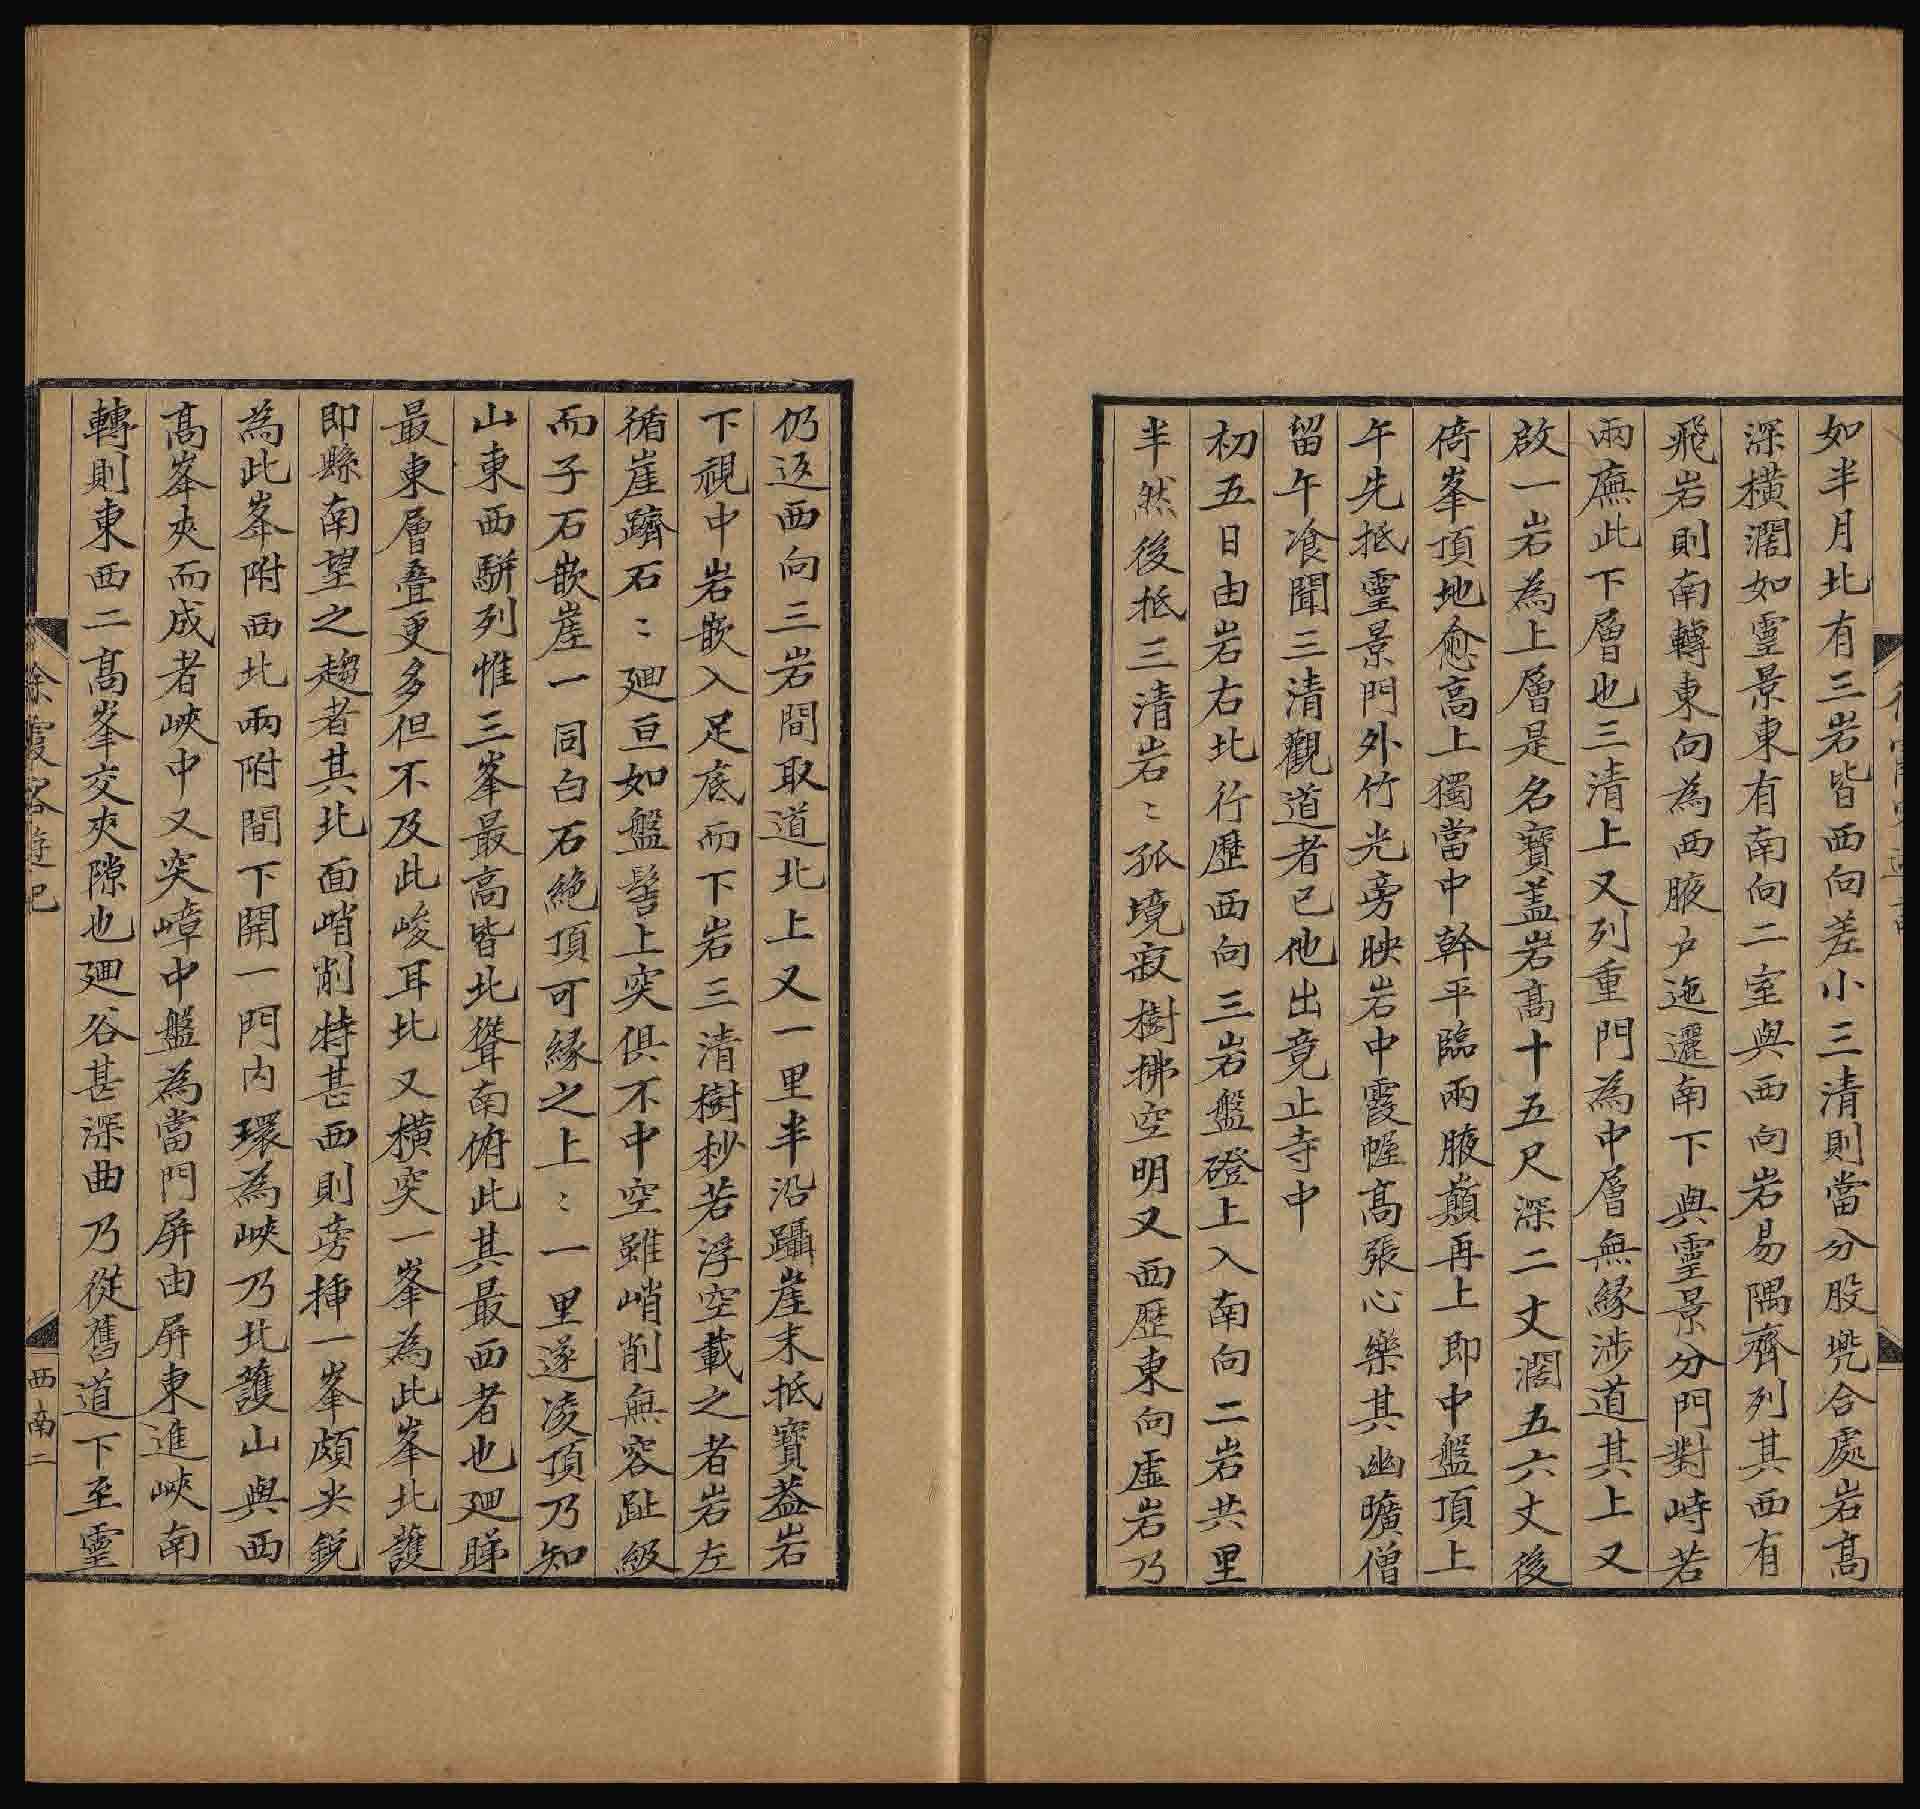 如半月北有三岩皆西向差小三清則當分股兠合處岩髙
深横濶如霊景東有南向二室與西向岩易隅齊列其西有
飛岩則南轉東向為西腋户迤邐南下與霊景分門對峙若
兩廡此下層也三清上又列重門為中層無縁渉道其上又
啟一岩為上層是名寶盖岩髙十五尺深二丈濶五六丈後
倚峯頂地愈高上獨當中幹平臨兩腋巔再上即中盤頂上
午先抵霊景門外竹光旁映岩中霞幄髙張心樂其幽曠僧
留午飡聞三清觀道者已他出竟止寺中
初五日由岩右北行歴西向三岩盤磴上入南向二岩共里
半然後抵三清岩〻孤境寂樹拂空明又西歴東向虛岩乃
仍返西向三岩間取道北上又一里半沿躡崖末抵寶葢岩
下視中岩嵌入足底而下岩三清樹杪若浮空載之者岩左
循崖躋石〻廻亘如盤髻上突俱不中空雖峭削無容趾級
而子石嵌崖一同白石絶頂可縁之上〻一里遂凌頂乃知
山東西駢列惟三峯最高皆北聳南俯此其最西者也廻睇
最東層疊更多但不及此峻耳北又横突一峯為此峯北護
即縣南望之趨者其北面峭削特甚西則旁揷一峯頗尖銳
為此峯附西北兩附間下開一門內環為峽乃北護山與西
髙峯夾而成者峽中又突嶂中盤為當門屏由屏東進峽南
轉則東西二髙峯交夾隙也廻谷甚深曲乃從舊道下至霊
徐霞客遊記
西南二